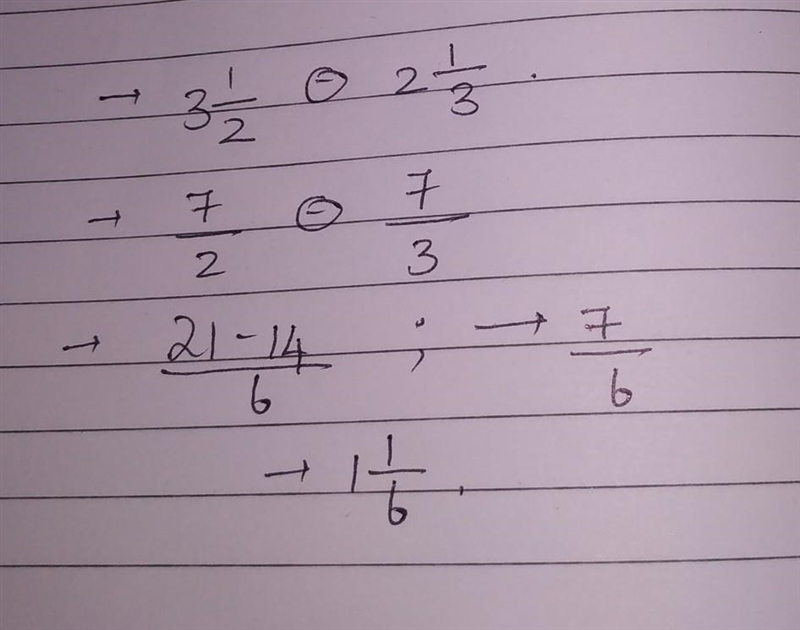 → 3 1/2 ⊖ 2 1/3 .
→ 7/2 ⊖ 7/3
→ 21-14/6 ; → 7/6
→ 1 1/6 .